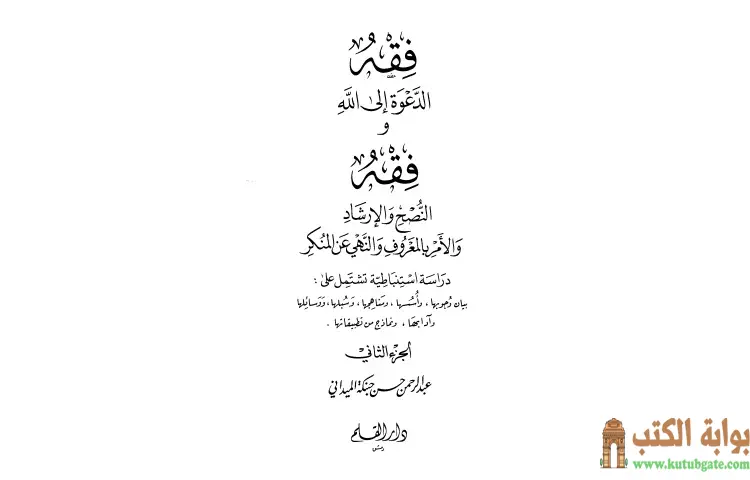 فِقْهُ
الدَّعْوَة إلَى اللَّهِ
و
فِقْهُ
النُّصْحِ وَالإرشَادِ
وَالأَمْرِ بِالمَعْرُوفِ وَالنَّهْيِ عَنِ المُنْكِرِ
دِرَاسَة اسْتِنبَاطِيَّة تشتَمِل عَلى :
بيان وُجوبها ، وأُسُسها ، ومناهجها ، وَسُبلها ، وَوسائلها
وآدابها ، ونماذج من تطبيقاتها .
الجزء الثاني
عبد الرحمن حسن حبنكة الميداني
دار القلم
دمشق
بوابة الكتب
www.kutubgate.com